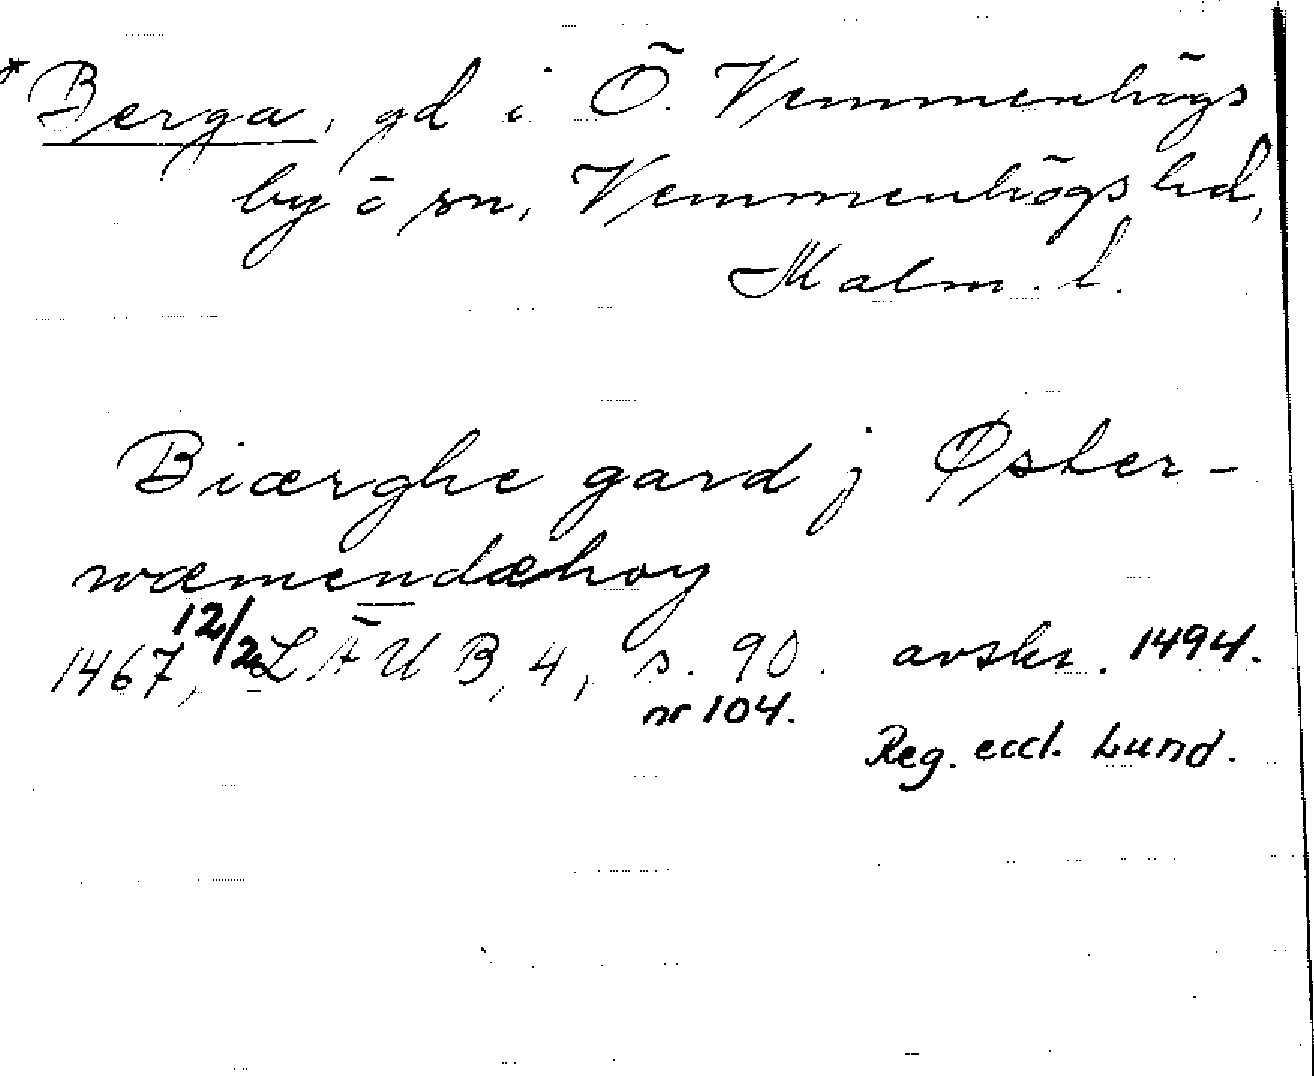 * Berga, gd i Ö. Vemmenhögs
by o sn, Vemmenhögs hd,
Malm. l.
Biærghe gard j Øster-
wæmendæhoy
1467, 12/2 LÄUB, 4, s. 90. avskr. 1494.
nr 104.
Reg. eccl. Lund.